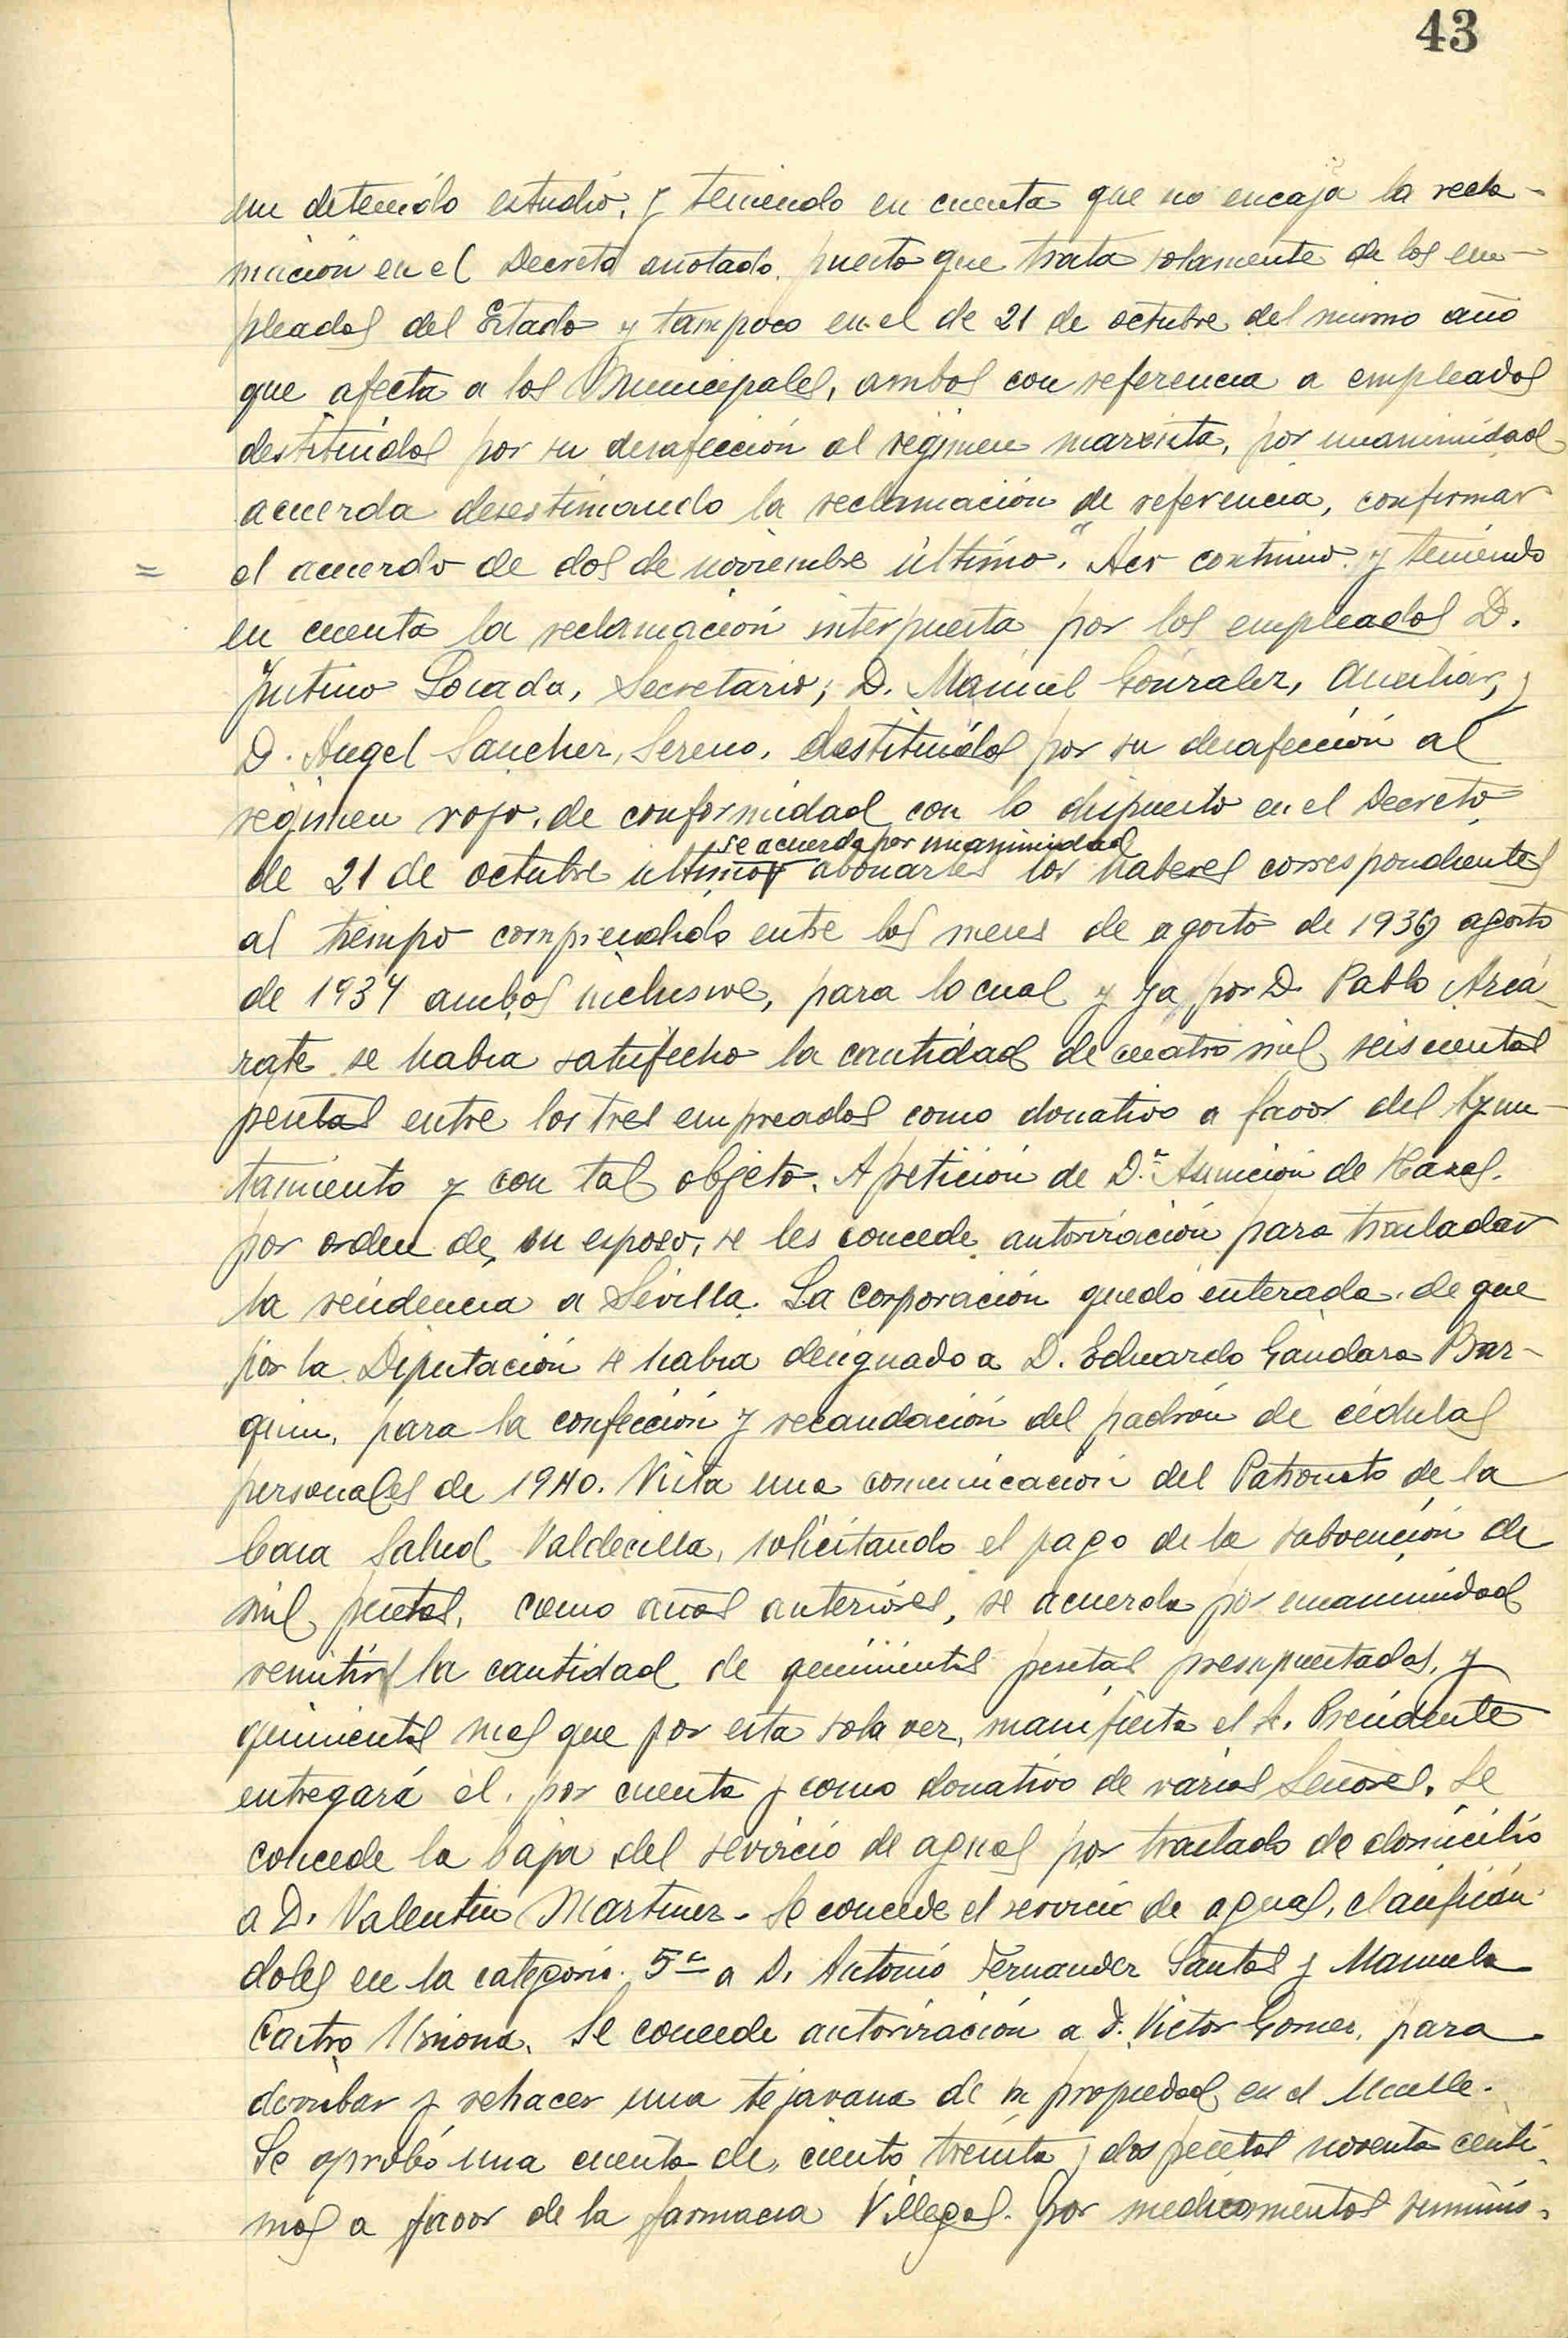 43
un detenido estudio, y teniendo en cuenta que no encaja la recla-
mación en el Decreto anotado, puesto que trata solamente de los em-
pleados del Estado y tampoco en el de 21 de octubre del mismo año
que afecta a los Municipales, ambos con referencia a empleados
destituidos por su desafección al régimen marxista, por unanimidad
acuerda desestimando la reclamación de referencia, confirmar
= el acuerdo de dos de noviembre último." Acto continuo y teniendo
en cuenta la reclamación interpuesta por los empleados D.
Justino Losada, Secretario; D. Manuel González, Auxiliar, y
D. Angel Sanchez, Sereno, destituidos por su desafección al
régimen rojo, de conformidad con lo dispuesto en el Decreto
se acuerda por unanimidad
de 21 de octubre último abonarles los haberes correspondientes
al tiempo comprendido entre los meses de agosto de 1936 y agosto
de 1937 ambos inclusive, para lo cual y ya por D. Pablo
se habia satisfecho la cantidad de cuatro mil seiscientas
pesetas entre los tres empreados como donativo a favor del Ayun-
tamiento y con tal objeto. A petición de Dª Asunción de
por orden de su esposo, se les concede autorización para trasladar
la residencia a Sevilla. La corporación quedó enterada de que
por la Diputación se habia designado a D. Eduardo Gandara Bar-
quin, para la confección y recaudación del padrón de cédulas
personales de 1940. Vista una comunicación del Patronato de la
Casa Salud Valdecilla, solicitando el pago de la subvención de
mil pesetas, como años anteriores, se acuerda por unanimidad
remitir la cantidad de quinientas pesetas presupuestadas, y
quinientas mas que por esta sola vez, manifiesta el Sr. Presidente
entregará él, por cuenta y como donativo de varios Señores. Se
concede la baja del servicio de aguas por traslado de domicilio
a D. Valentin Martinez. Se concede el servicio de aguas, clasificán-
doles en la categoria 5ª a D. Antonio Fernandez Santos y Manuela
Castro. Se concede autorización a D. Victor Gomez, para
derribar y rehacer una tejavana de su propiedad en el Muelle.
Se aprobó una cuenta de ciento treinta y dos pesetas noventa cénti-
mos a favor de la farmacia Villegas por medicamentos suminis-